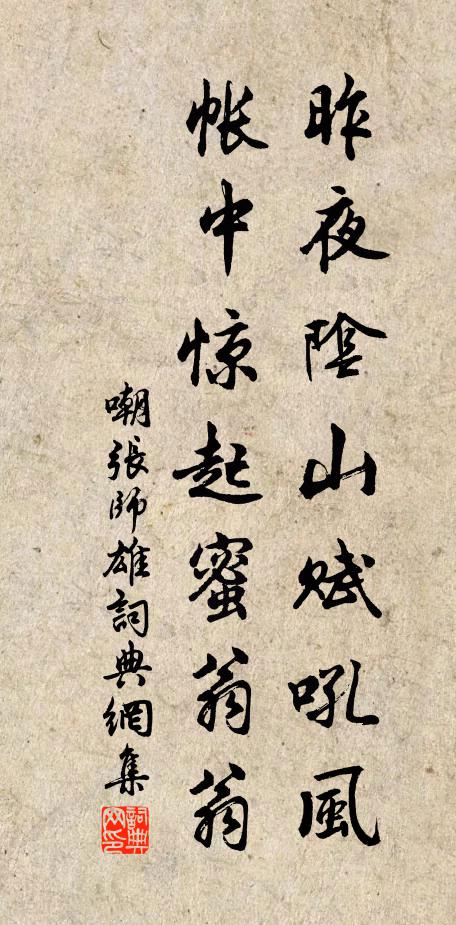 昨夜陰山賊吼風
帳中惊起蜜翁翁
嘲張師雄詞典網集
詞典網印